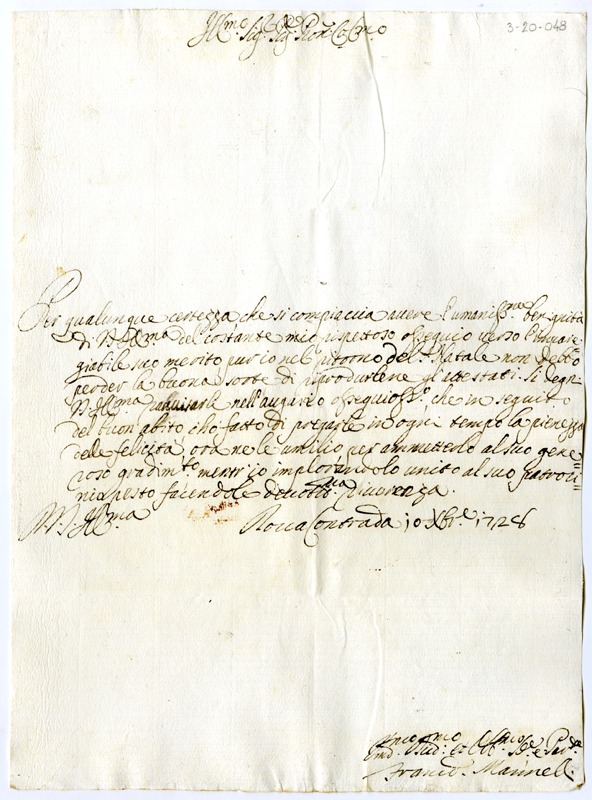 Ill.mo Sig.r Sig.r Pron Col.mo
3-20-048
Per qualunque certezza, che si compiaccia avere l'umaniss.ma benignità
di V.S. Ill.ma del costante mio rispettoso ossequio verso l'impare=
giabile suo merito pur io nel ritorno del S. Natale non debbo
perder la buona sorte di riprodurlene gli attestati. Si degni
V.S. Ill.ma nell'augurio ossequioss.o che in seguito
del buon abito, ch'ho fatto di pregarle in ogni tempo la pienezza
delle felicità, ora ne le umilio per ammetterlo al suo gene=
roso gradim.to mentr'io implorandolo unito al suo patroci=
nio resto facendole devotis.ma riverenza.
D. V.S. Ill.ma
Rocca Contrada 10 Xbr.e 1728
Um.o Dev.mo ed Obb.mo Ser.e
Franc.o Marinelli